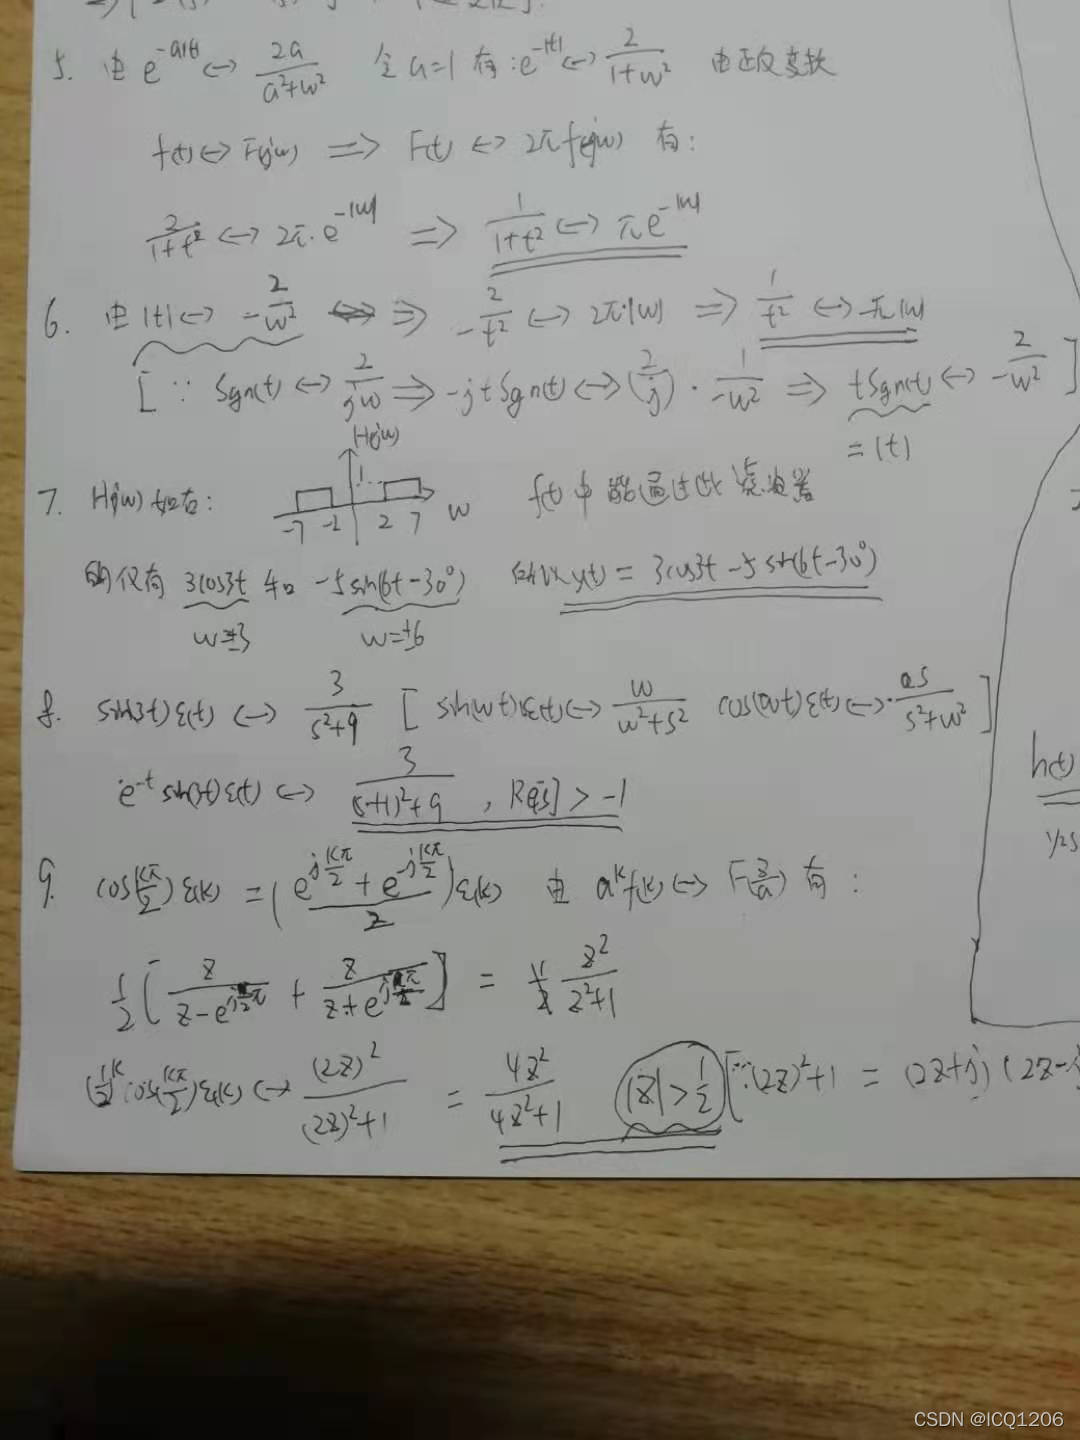 5. 由 e^{-a|t|} ↔ 2a/(a²+w²) 令a=1 有: e^{-|t|} ↔ 2/(1+w²) 由正反变换
f(t) ↔ F(jw) ⇒ F(t) ↔ 2π f(jw) 有:
2/(1+t²) ↔ 2π·e^{-|w|} ⇒ 1/(1+t²) ↔ πe^{-|w|}
6. 由 |t| ↔ -2/w² ⇒ -2/t² ↔ 2π·|w| ⇒ 1/t² ↔ -π|w|
[∵ Sgn(t) ↔ 2/(jw) ⇒ -jtSgn(t) ↔ (2/j)·1/(-w²) ⇒ tSgn(t) ↔ -2/w²]
= |t|
H(jw)
7. H(jw)如右: 1 -7 -2 2 7 w f(t)中能通过此滤波器
的仅有 3cos3t 和 -5sin(6t-30°) 所以 y(t) = 3cos3t-5sin(6t-30°)
w=±3 w=±6
8. sin(3t)ε(t) ↔ 3/(s²+9) [sin(wt)ε(t) ↔ w/(w²+s²) cos(wt)ε(t) ↔ as/(s²+w²)]
e^{-t}sin(3t)ε(t) ↔ 3/((s+1)²+9), Re[s] > -1
h(t)
1/2s
9. cos(kπ/2)ε(k) = (e^{jkπ/2}+e^{-jkπ/2})/2 ε(k) 由 a^k f(k) ↔ F(z/a) 有:
1/2[z/(z-e^{jπ/2}) + z/(z+e^{jπ/2})] = z²/(z²+1)
(1/2)^k cos(kπ/2)ε(k) ↔ (2z)²/((2z)²+1) = 4z²/(4z²+1) |z|>1/2 [∵(2z)²+1 = (2z+j)(2z-j
CSDN @ICQ1206